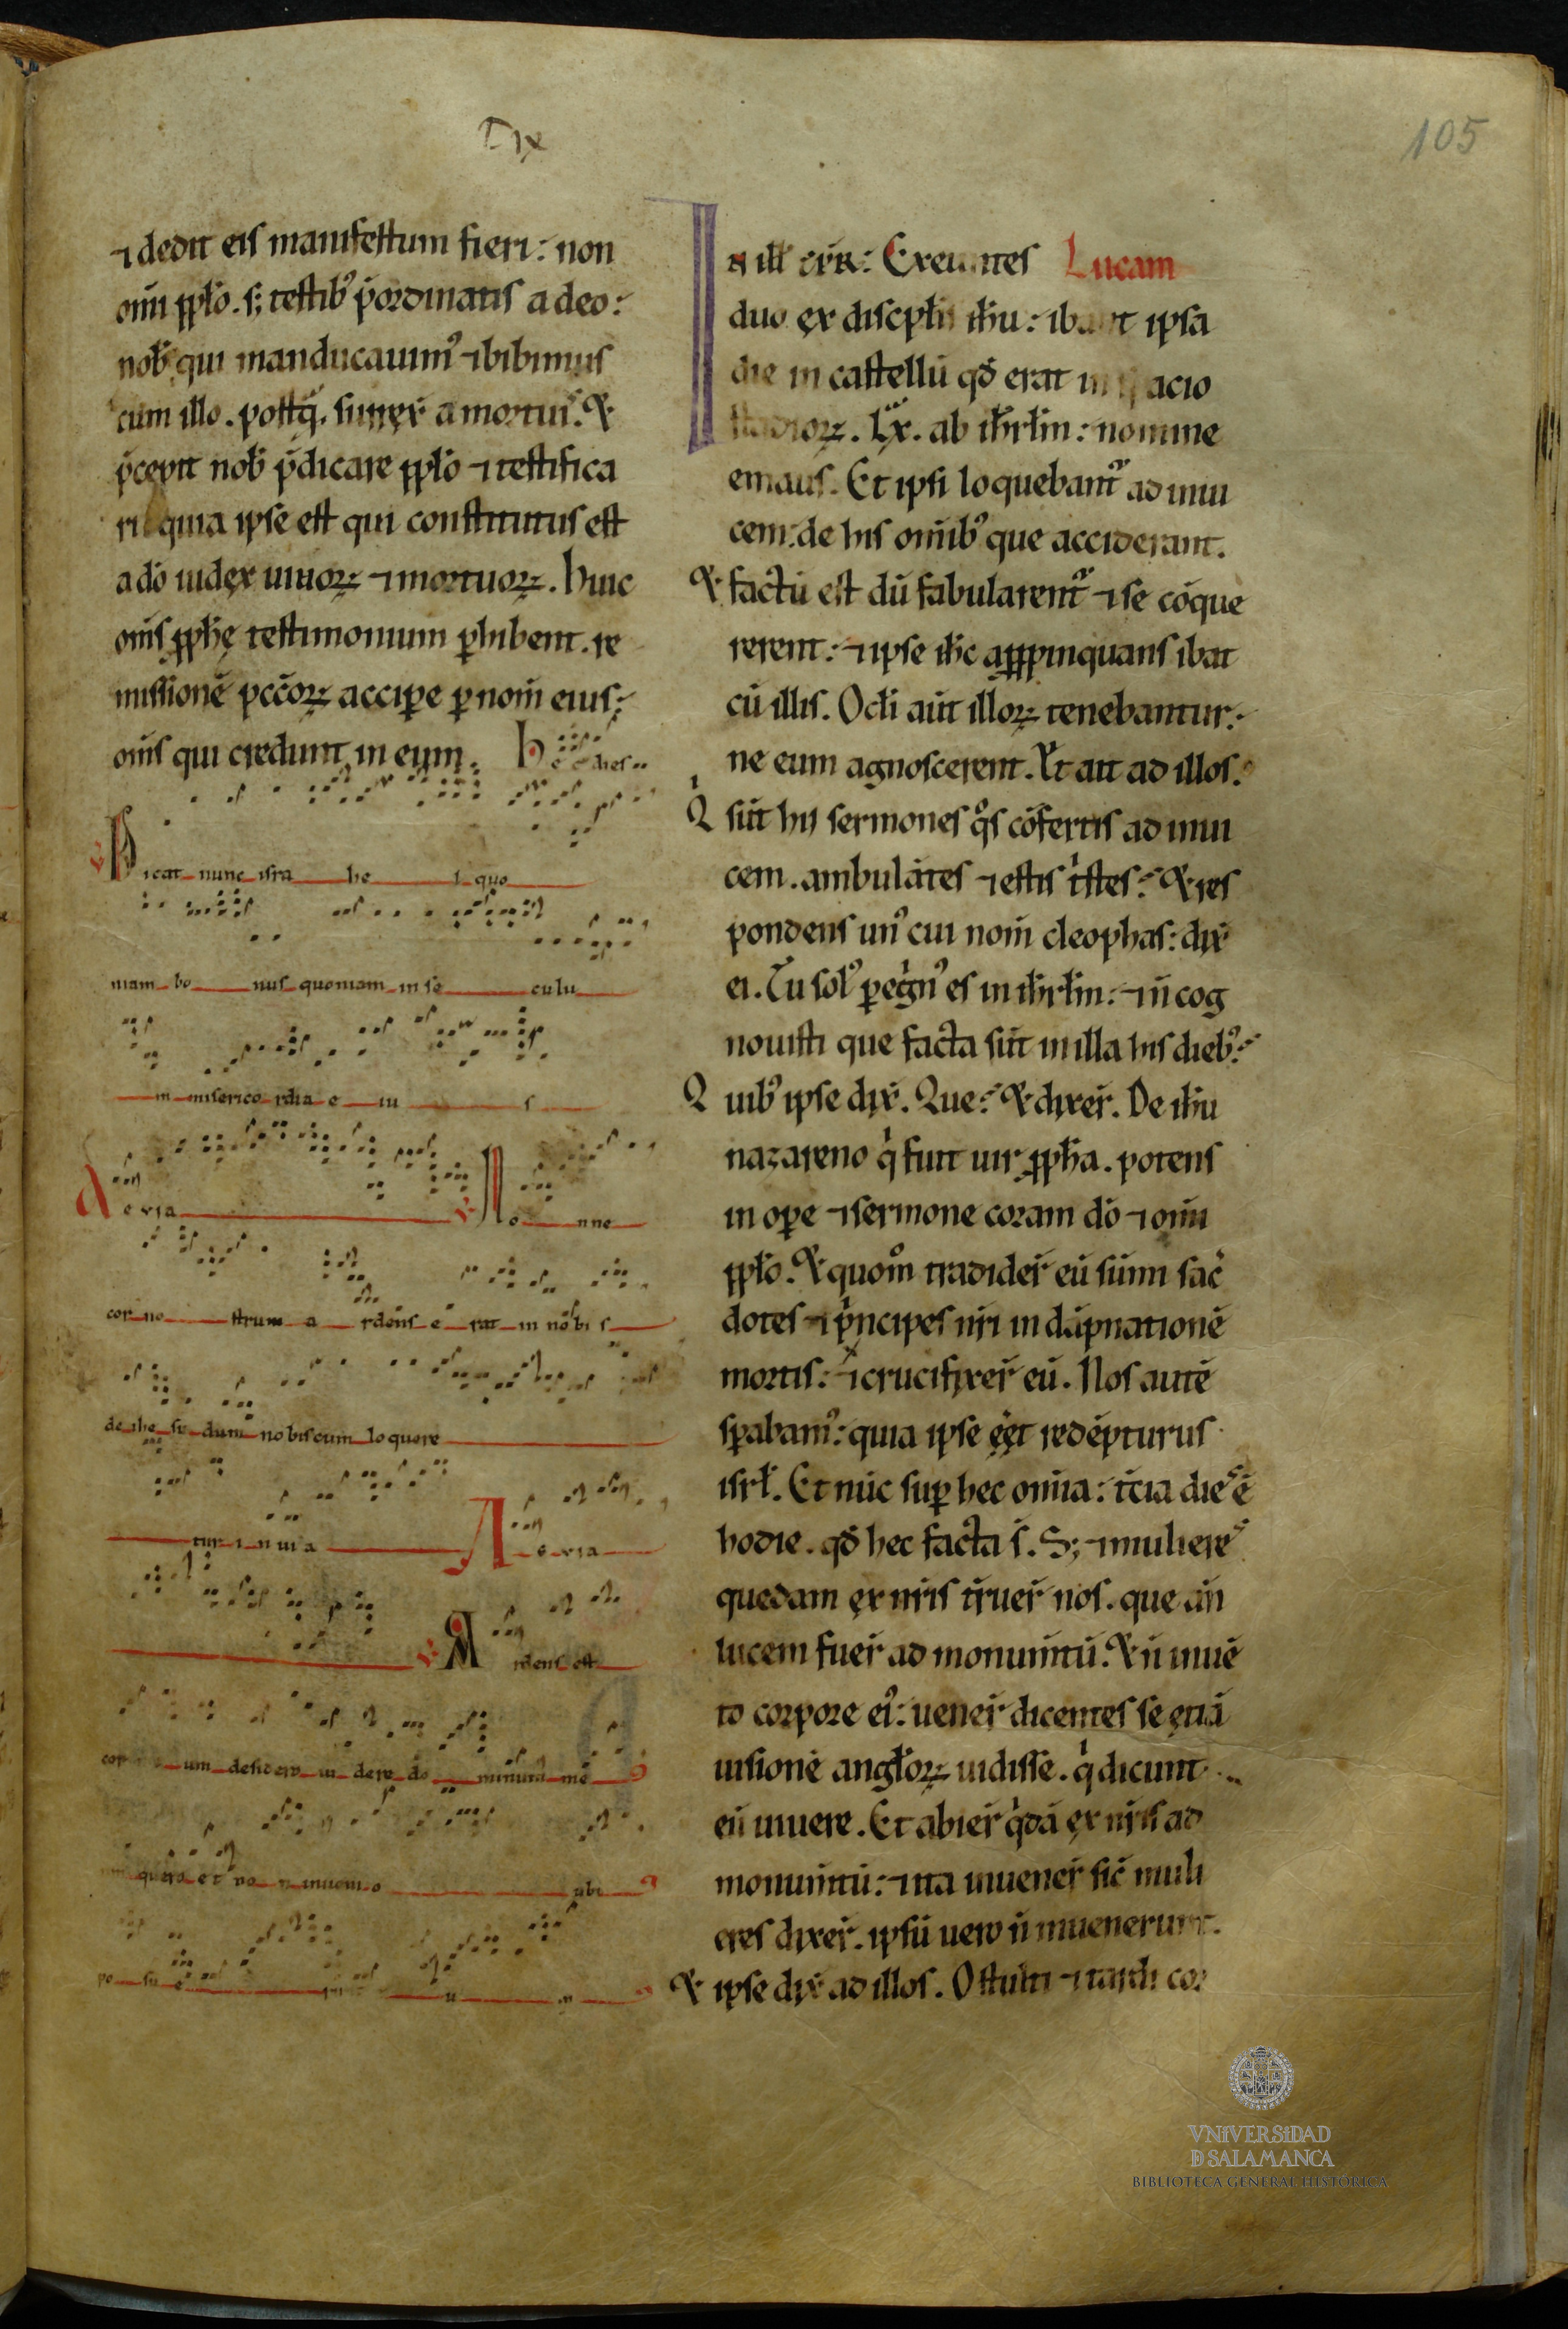 105
⁊ dedit eis manifestum fieri: non
om̄i pp̄lo. s; testib᾽ p̄ordinatis a deo:
nob̄ qui manducauim᾽ ⁊ bibimus
cum illo. postq̄. surrex̄ a mortuis. Et
p̄cepit nob̄ p̄dicare pp̄lo ⁊ testifica
ri quia ipse est qui constitutus est
a dō iudex uiuoꝝ ⁊ mortuoꝝ. Huic
om̄s pp̄hę testimonium ꝑhibent. re
missionē pcc̄oꝝ acciꝑe ꝑ nom̄ eius:
om̄s qui credunt in eum. Hec dies
Dicat nunc isra he l quo
niam bo nus quoniam in se culu
m misericordia e iu s
A e via No nne
cor no strum a rdens e rat in nobis
de ihe su dum nobiscum loquere
tur in uia A e via
Ardens est
cor um desidero ui dere do minum me
quero et no n inuenio ubi
po su e
In ill̄ Exeuntes Lucam
duo ex discipl̄is ih̄u: ibant ipsa
die in castellū qd̄ erat in spacio
stadioꝝ. Lx. ab ih̄rlm̄: nomine
emaus. Et ipsi loquebant᾽ ad inui
cem: de his om̄ib᾽ que acciderant.
Et factū est dū fabularent᾽ ⁊ se cōque
rerent: ⁊ ipse ih̄c apꝓpinquans ibat
cū illis. Ocl̄i aūt illoꝝ tenebantur:
ne eum agnoscerent. Et ait ad illos.
Qi sūt hij sermones qͦs cōfertis ad inui
cem. ambulātes ⁊ estis tͥstes? Et res
pondens un᾽ cui nom̄ cleophas: dix̄
ei. Tu sol᾽ ꝑegͥn᾽ es in ih̄rlm̄: ⁊ n̄ cog
nouisti que facta sūt in illa his dieb᾽?
Quib᾽ ipse dix̄. Que? Et dixer̄. De ih̄u
nazareno qͥ fuit uir pp̄ha. potens
in oꝑe ⁊ sermone coram dō ⁊ om̄i
pp̄lo. Et quom̊ tradider̄ eū sūmi sac̄
dotes ⁊ pͥncipes nr̄i in dāpnationē
mortis: ⁊ crucifixer̄ eū. Nos autē
sꝑabam᾽: quia ipse eēt redēpturus
isrl̄. Et nūc suꝑ hec om̄ia: t̄cia dies ē
hodie. qd̄ hec facta s̄. S; ⁊ mulieres
quedam ex nr̄is t̄ruer̄ nos. que an̄
lucem fuer̄ ad monumn̄tū. Et n̄ inuē
to corpore ei᾽: uener̄ dicentes se etiā
uisionē angl̄oꝝ uidisse. qͥ dicunt
eū uiuere. Et abier̄ qͥdā ex nr̄is ad
monumn̄tū: ⁊ ita inuener̄ sic̄ muli
eres dixer̄. ipsū uero n̄ inuenerunt.
Et ipse dix̄ ad illos. O stulti ⁊ tardi cor
VNIVERSIDAD
D SALAMANCA
BIBLIOTECA GENERAL HISTÓRICA